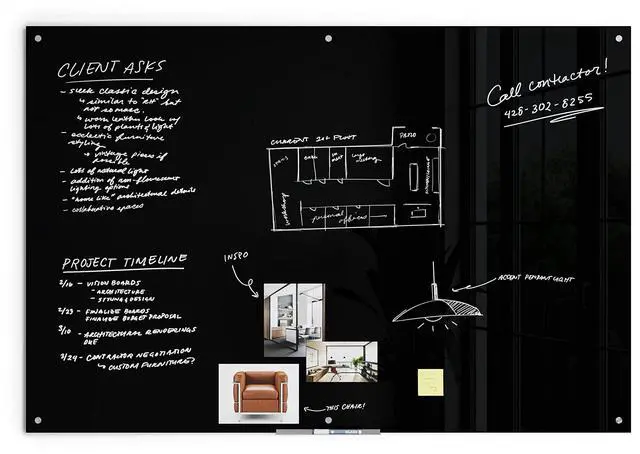 CLIENT ASKS
- sleek classic design
↳ similar to "RH" but
not so masc.
↳ worn leather look w/
lots of plants & light
- eclectic furniture
styling
↳ vintage pieces if
possible
- lots of natural light
- addition of non-flourescent
lighting options
- "home like" architectural details
- collaborative spaces
Call contractor!
428-302-8255
CURRENT 2nd FLOOR
PATIO
workshop
personal offices
PROJECT TIMELINE
2/10 - VISION BOARDS
- ARCHITECTURE
- STYLING & DESIGN
2/23 - FINALIZE BOARDS
FINALIZE BUDGET PROPOSAL
3/10 - ARCHITECTURAL RENDERINGS
DUE
3/24 - CONTRACTOR NEGOTIATION
↳ CUSTOM FURNITURE?
INSPO
ACCENT PENDANT LIGHT
THIS CHAIR!